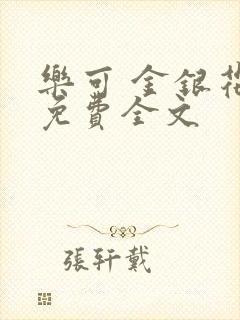 樂可 金銀花
免費全文
張軒戴